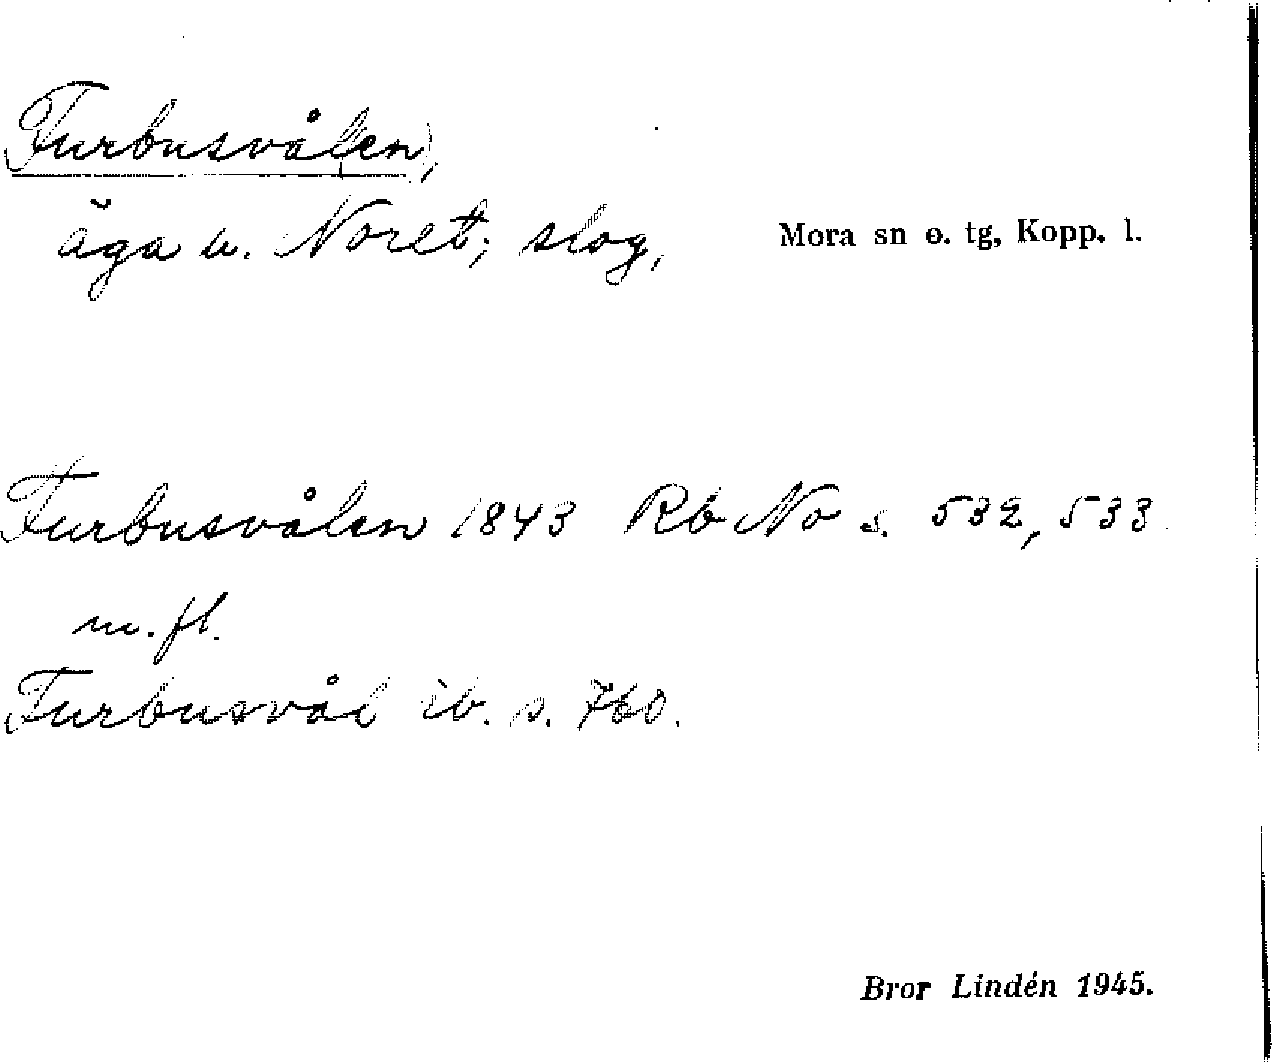 Furbusvålen,
äga u. Noret; slog,
Mora sn o. tg, Kopp. l.
Furbusvålen 1843 Rb No s. 532, 533
m. fl.
Furbusvål ib. s. 760.
Bror Lindén 1945.